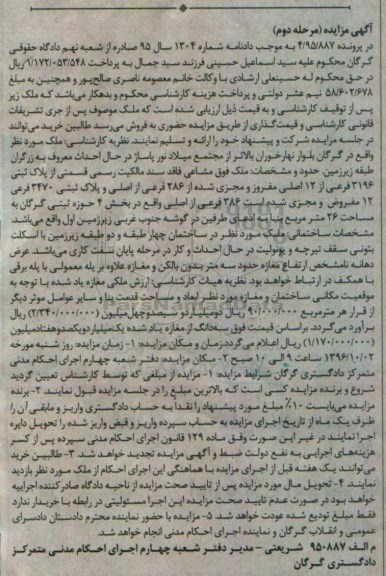 آگهی مزایده (مرحله دوم)
در پرونده ۴/۹۵/۸۸۷ به موجب دادنامه شماره ۱۳۰۴ سال ۹۵ صادره از شعبه نهم دادگاه حقوقی
گرگان محکوم علیه سید اسماعیل حسینی فرزند سید جمال به پرداخت ۱/۱۷۲/۰۵۳/۵۴۸ ریال
در حق محکوم له حسینعلی ارشادی با وکالت خانم معصومه ناصری صالح‌پور و همچنین به مبلغ
۵۸/۶۰۲/۶۷۸ نیم عشر دولتی و پرداخت هزینه کارشناسی محکوم و بدهکار می‌باشد که ملک زیر
پس از توقیف کارشناسی و به قیمت ذیل ارزیابی شده است که ملک موصوف پس از جری تشریفات
قانونی کارشناسی و قیمت‌گذاری از طریق مزایده حضوری به فروش می‌رسد طالبین خرید می‌توانند
در جلسه مزایده شرکت و پیشنهاد خود را ارائه و تسلیم نمایند. نظریه کارشناسی: ملک مورد نظر
واقع در گرگان بلوار نهارخوران بالاتر از مجتمع میلاد نور پاساژ در حال احداث معروف به زرگران
طبقه زیرزمین. حدود و مشخصات: ملک فوق مشاعی فاقد سند مالکیت رسمی قسمتی از پلاک ثبتی
۳۱۹۶ فرعی از ۱۲ اصلی مفروز و مجزی شده از ۳۸۶ فرعی از اصلی و پلاک ثبتی ۲۴۷۰ فرعی
۱۲ مفروض و مجزی شده است ۳۸۶ فرعی از اصلی واقع در بخش ۴ حوزه ثبتی گرگان به
مساحت ۲۶ متر مربع بنا به ادعای طرفین در گوشه جنوب غربی زیرزمین اول واقع می‌باشد.
مشخصات ساختمانی: ملک مورد نظر در ساختمان چهار طبقه و دو طبقه زیرزمین با اسکلت
بتونی سقف تیرچه و یونولیت در حال احداث و کار در مرحله پایان سفت کاری می‌باشد. عرض
دهانه نامشخص ارتفاع مغازه حدود سه متر بدون بالکن و مغازه علاوه بر پله معمولی با پله برقی
با همکف در ارتباط خواهد بود. نظریه هیات کارشناسی: ارزش ملکی مغازه یاد شده با توجه به
موقعیت مکانی ساختمان و مغازه مورد نظر ابعاد و مساحت قدمت بنا و سایر عوامل موثر دیگر
از قرار هر مترمربع ۹۰/۰۰۰/۰۰۰ ریال دومیلیارد و سیصدوچهل‌میلیون (۲/۳۴۰/۰۰۰/۰۰۰) ریال
برآورد می‌گردد. براساس قیمت فوق سه‌دانگ از مغازه یاد شده یک‌میلیاردویکصدوهفتادمیلیون
(۱/۱۷۰/۰۰۰/۰۰۰) ریال اعلام می‌گردد. زمان و مکان مزایده: ۱- زمان مزایده: روز شنبه مورخه
۱۳۹۶/۱۰/۰۲ ساعت ۹ الی ۱۰ صبح ۲- مکان مزایده: دفتر شعبه چهارم اجرای احکام مدنی
متمرکز دادگستری گرگان شرایط مزایده: ۱- مزایده از مبلغی که توسط کارشناس تعیین گردید
شروع و برنده مزایده کسی است که بالاترین مبلغ را در جلسه مزایده قبول نمایند. ۲- برنده
مزایده می‌بایست ۱۰٪ مبلغ مورد پیشنهاد را نقدا به حساب دادگستری واریز و مابقی آن را
ظرف یک ماه از تاریخ اجرای مزایده به حساب سپرده واریز و قبض واریز شده را تحویل دایره
اجرا نمایند در غیر این صورت وفق ماده ۱۲۹ قانون اجرای احکام مدنی سپرده پس از کسر
هزینه‌های اجرایی به نفع دولت ضبط و آگهی مزایده تجدید خواهد شد. ۳- طالبین خرید
می‌توانند یک هفته قبل از اجرای مزایده با هماهنگی این اجرای احکام از ملک مورد نظر بازدید
نمایند. ۴- تحویل مال مورد مزایده پس از تایید صحت مزایده از ناحیه دادگاه صادرکننده اجراییه
خواهد بود در صورت عدم تایید صحت مزایده این اجرا مسئولیتی در رابطه با خریدار ندارد
فقط مبلغ تودیع شده عودت خواهد شد. ۵- مزایده با حضور نماینده محترم دادستان دادسرای
عمومی و انقلاب گرگان و نماینده اجرای احکام مدنی انجام خواهد شد.
م الف ۹۵۰۸۸۷ شریعتی – مدیر دفتر شعبه چهارم اجرای احکام مدنی متمرکز
دادگستری گرگان